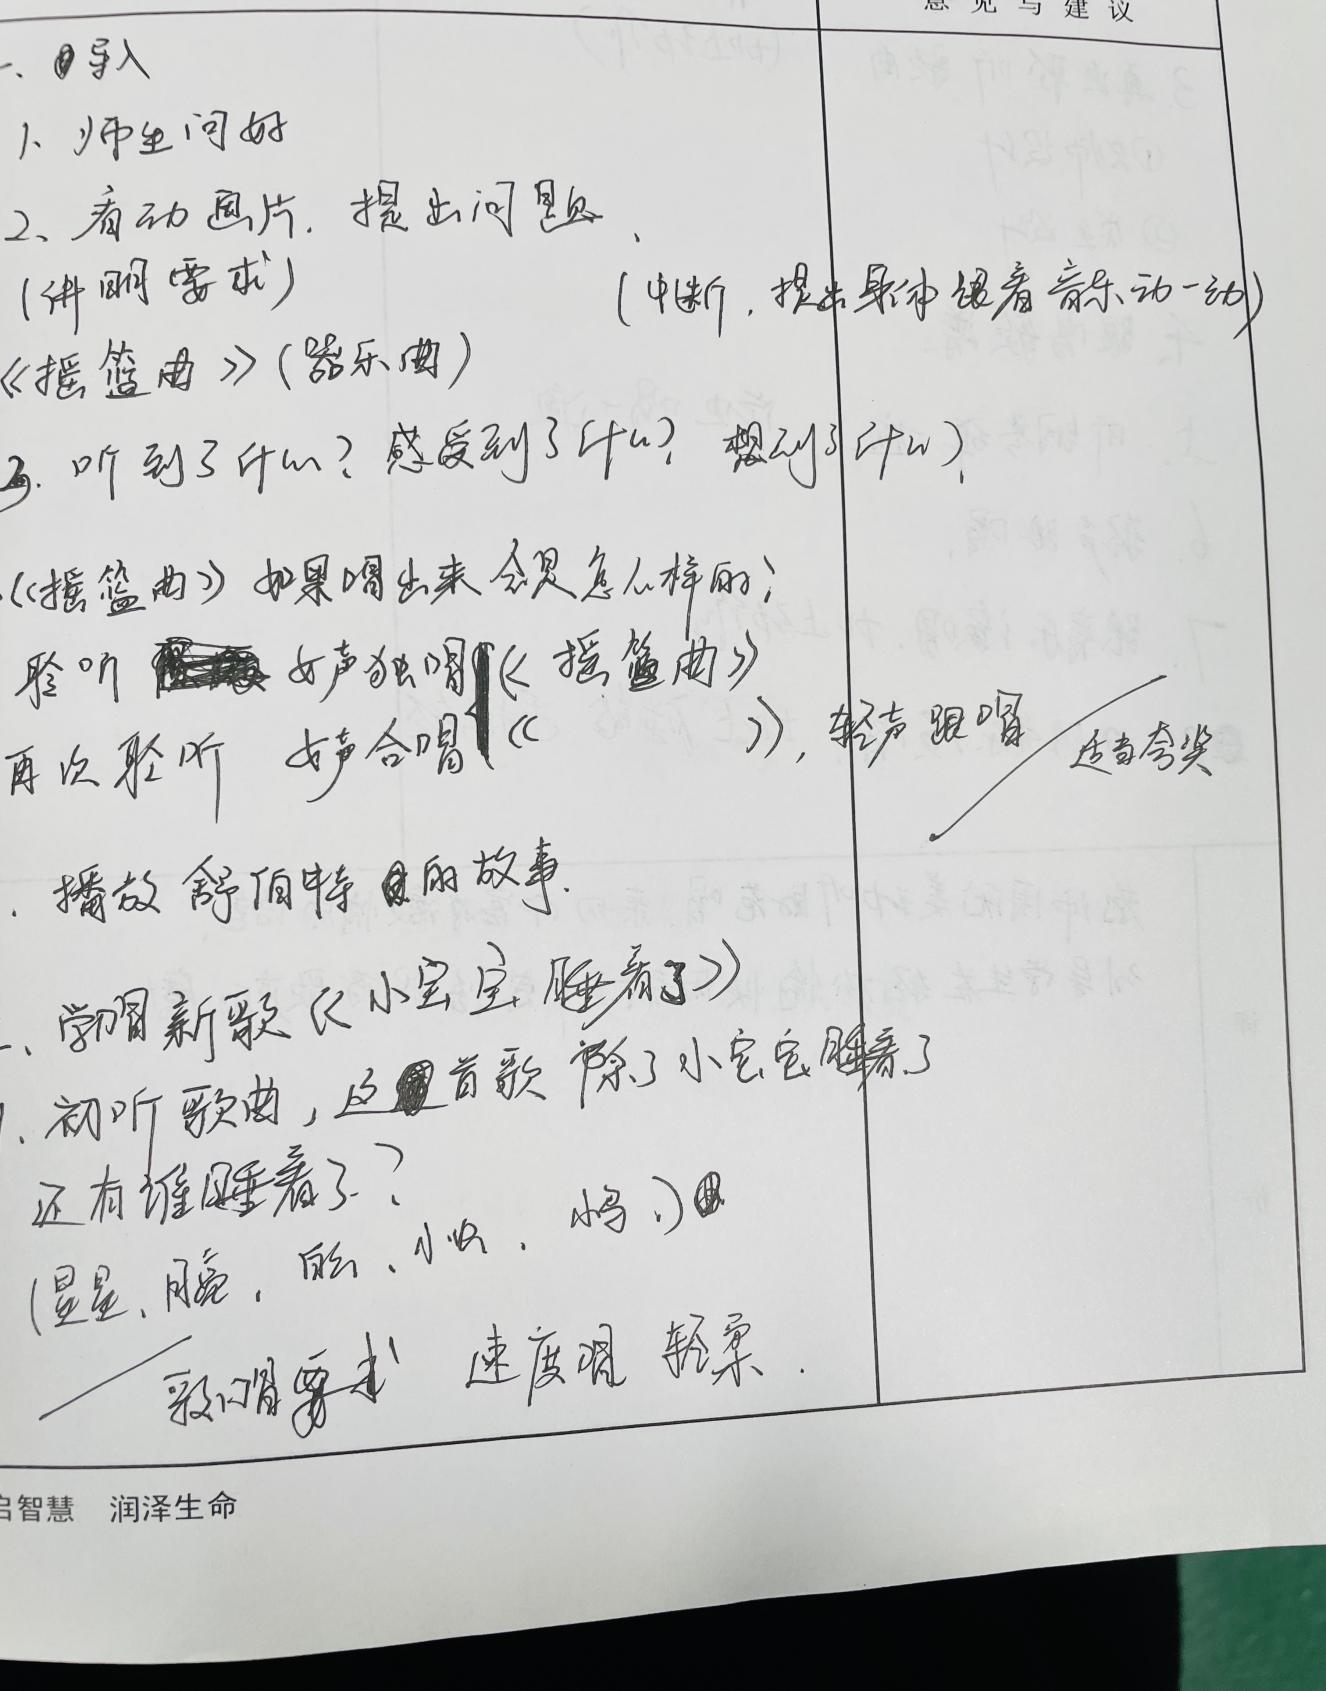 意见与建议
一、导入
1、师生问好
2、看动画片.提出问题、
(讲明要求) (中断，提出身体跟着音乐动一动)
《摇篮曲》(器乐曲)
3. 听到了什么？感受到了什么？想到了什么？
《摇篮曲》如果唱出来会是怎么样的？
聆听 女声独唱《摇篮曲》
再次聆听 女声合唱《 》，轻声跟唱 适当夸奖
. 播放舒伯特的故事.
、学唱新歌《小宝宝睡着了》
1、初听歌曲，这首歌除了小宝宝睡着了
还有谁睡着了？
(星星、月亮、白云、小狗、小鸟、)
歌唱要求 速度唱 轻柔.
启智慧 润泽生命